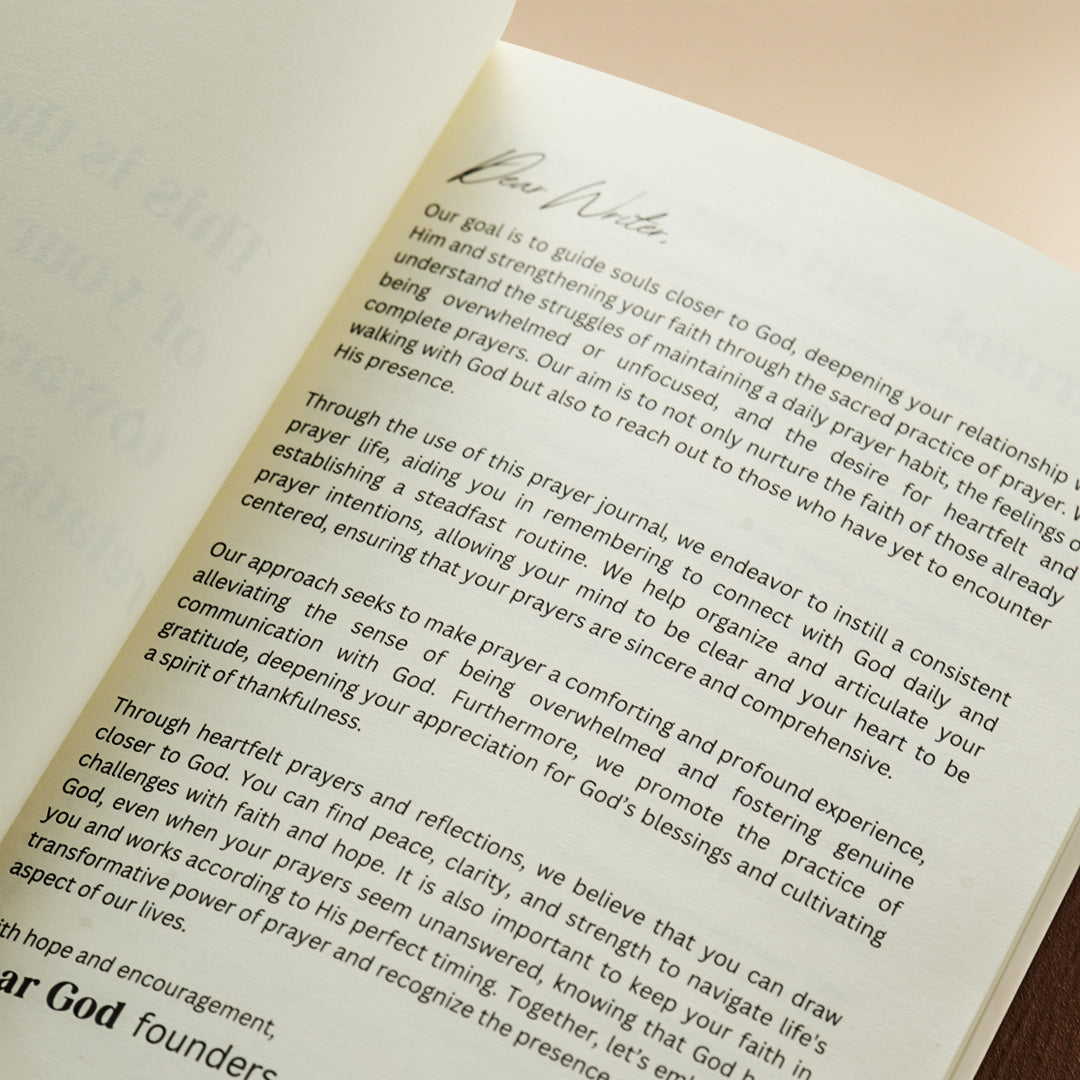 Dear Writer,
Our goal is to guide souls closer to God, deepening your relationship
Him and strengthening your faith through the sacred practice of prayer.
understand the struggles of maintaining a daily prayer habit, the feelings
being overwhelmed or unfocused, and the desire for heartfelt and
complete prayers. Our aim is to not only nurture the faith of those already
walking with God but also to reach out to those who have yet to encounter
His presence.
Through the use of this prayer journal, we endeavor to instill a consistent
prayer life, aiding you in remembering to connect with God daily and
establishing a steadfast routine. We help organize and articulate your
prayer intentions, allowing your mind to be clear and your heart to be
centered, ensuring that your prayers are sincere and comprehensive.
Our approach seeks to make prayer a comforting and profound experience,
alleviating the sense of being overwhelmed and fostering genuine
communication with God. Furthermore, we promote the practice of
gratitude, deepening your appreciation for God's blessings and cultivating
a spirit of thankfulness.
Through heartfelt prayers and reflections, we believe that you can draw
closer to God. You can find peace, clarity, and strength to navigate life's
challenges with faith and hope. It is also important to keep your faith in
God, even when your prayers seem unanswered, knowing that God
you and works according to His perfect timing. Together, let's
transformative power of prayer and recognize the presence
aspect of our lives.
ith hope and encouragement,
ar God founders